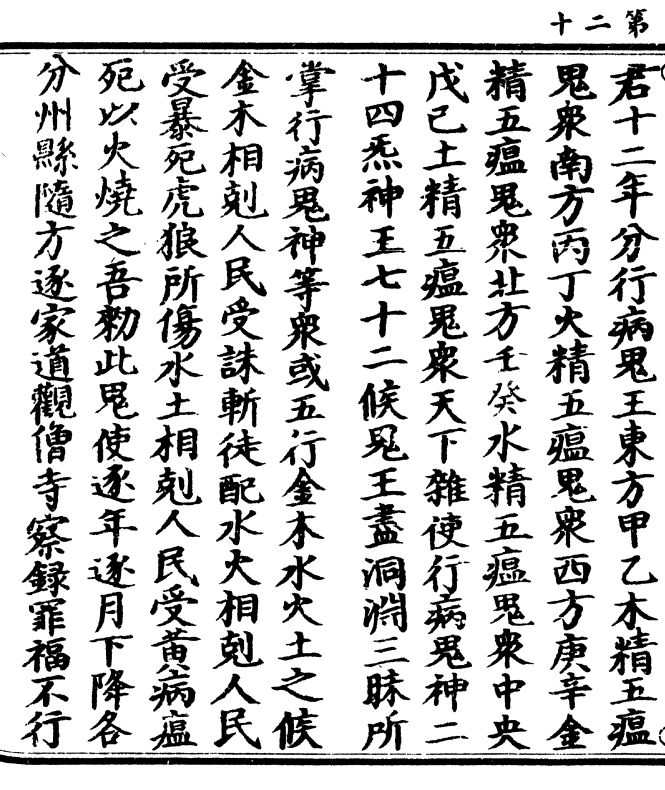 第二十
君十二年分行病鬼王東方甲乙木精五瘟
鬼衆南方丙丁火精五瘟鬼衆西方庚辛金
精五瘟鬼衆北方壬癸水精五瘟鬼衆中央
戊己土精五瘟鬼衆天下雜使行病鬼神二
十四炁神王七十二候鬼王盡洞淵三昧所
掌行病鬼神等衆或五行金木水火土之候
金木相剋人民受誅斬徒配水火相剋人民
受暴死虎狼所傷水土相剋人民受黄病瘟
死以火燒之吾勑此鬼使逐年逐月下降各
分州縣隨方逐家道觀僧寺察録罪福不行